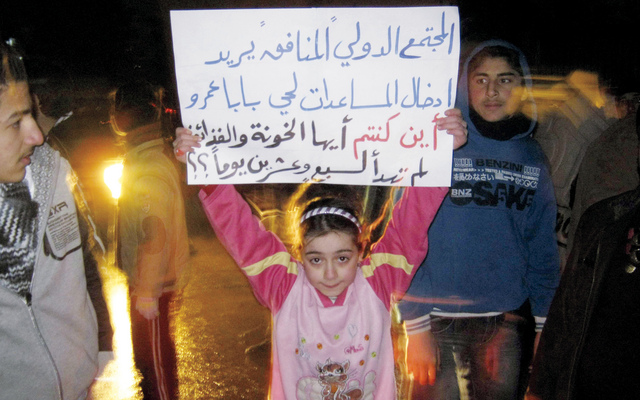 المجتمع الدولي "المنافق" يريد
إدخال المساعدات لحي بابا عمرو
أين كنتم أيها الخونة والقذائف
لم تهدأ لسبع وعشرين يوماً؟؟
BENZINE
BNZ